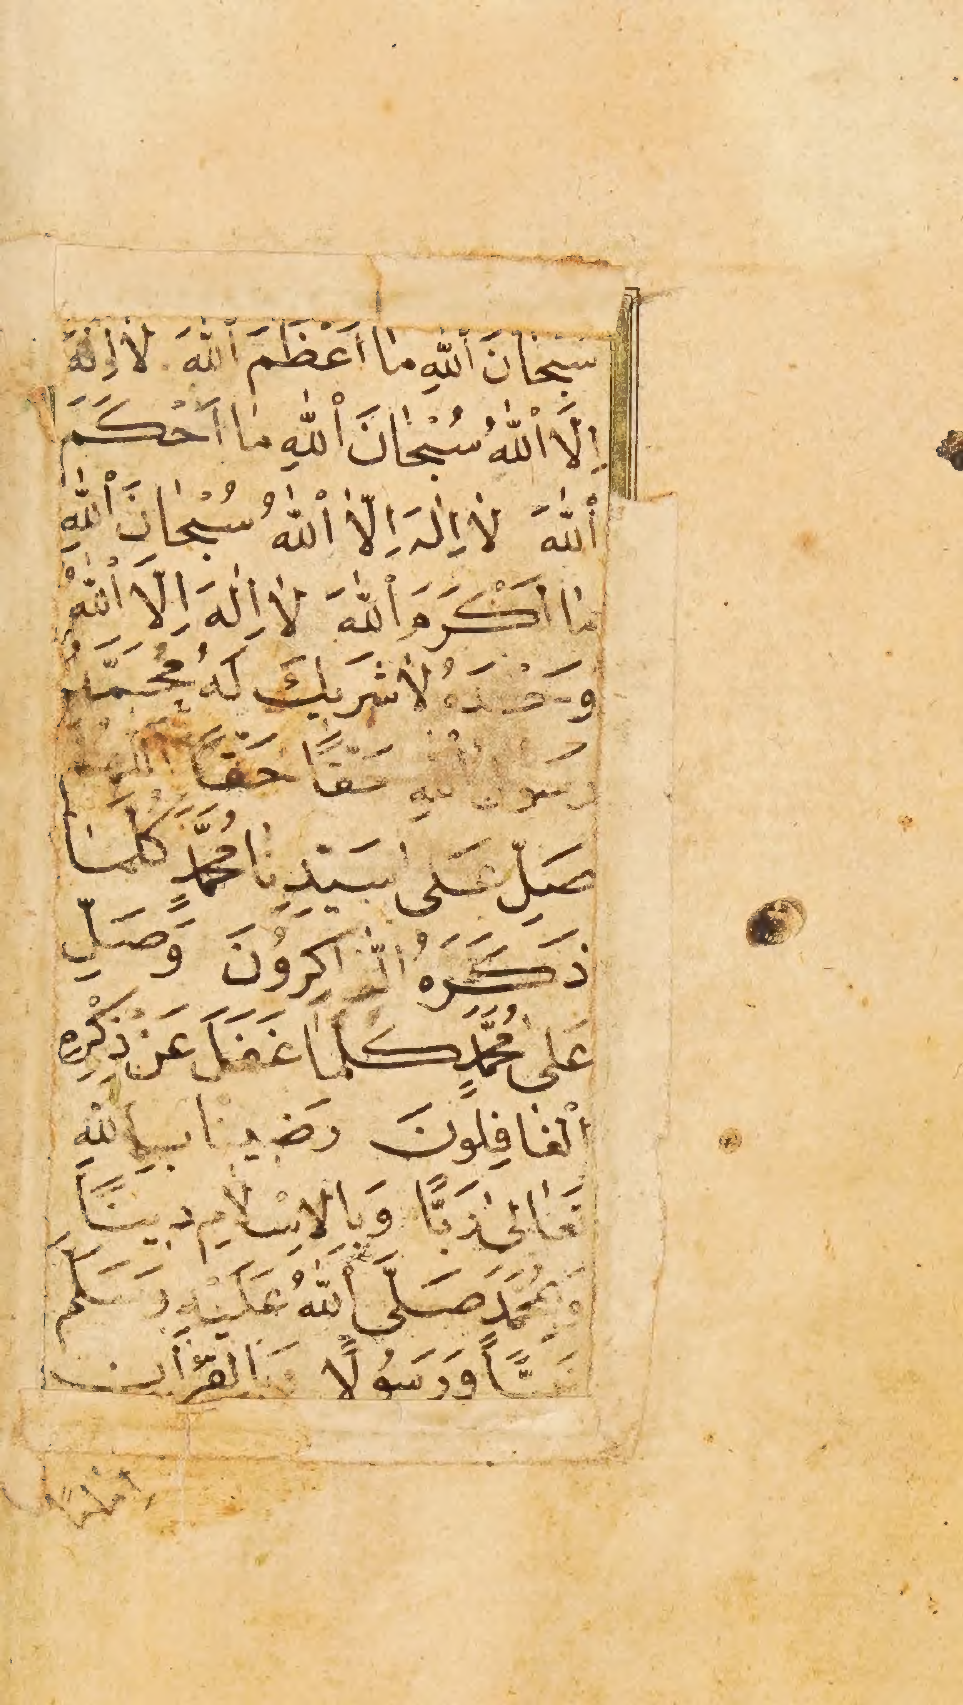 سُبْحَانَ ٱللّٰهِ مَا اَعْظَمَ ٱللّٰهَ لَا اِلٰهَ
اِلَّا ٱللّٰهُ سُبْحَانَ ٱللّٰهِ مَا اَحْكَمَ
ٱللّٰهَ لَا اِلٰهَ اِلَّا ٱللّٰهُ سُبْحَانَ ٱللّٰهِ
مَا اَكْرَمَ ٱللّٰهَ لَا اِلٰهَ اِلَّا ٱللّٰهُ
وَحْدَهُ لَا شَرِيكَ لَهُ مُحَمَّدٌ
رَسُولُ ٱللّٰهِ حَقًّا حَقًّا اللّٰهُمَّ
صَلِّ عَلٰى سَيِّدِنَا مُحَمَّدٍ كُلَّمَا
ذَكَرَهُ الذَّاكِرُونَ وَصَلِّ
عَلٰى مُحَمَّدٍ كُلَّمَا غَفَلَ عَنْ ذِكْرِهِ
ٱلْغَافِلُونَ رَضِينَا بِاللّٰهِ
تَعَالٰى رَبًّا وَبِالْاِسْلَامِ دِينًا
وَبِمُحَمَّدٍ صَلَّى ٱللّٰهُ عَلَيْهِ وَسَلَّمَ
نَبِيًّا وَرَسُولًا وَبِالْقُرْاٰنِ